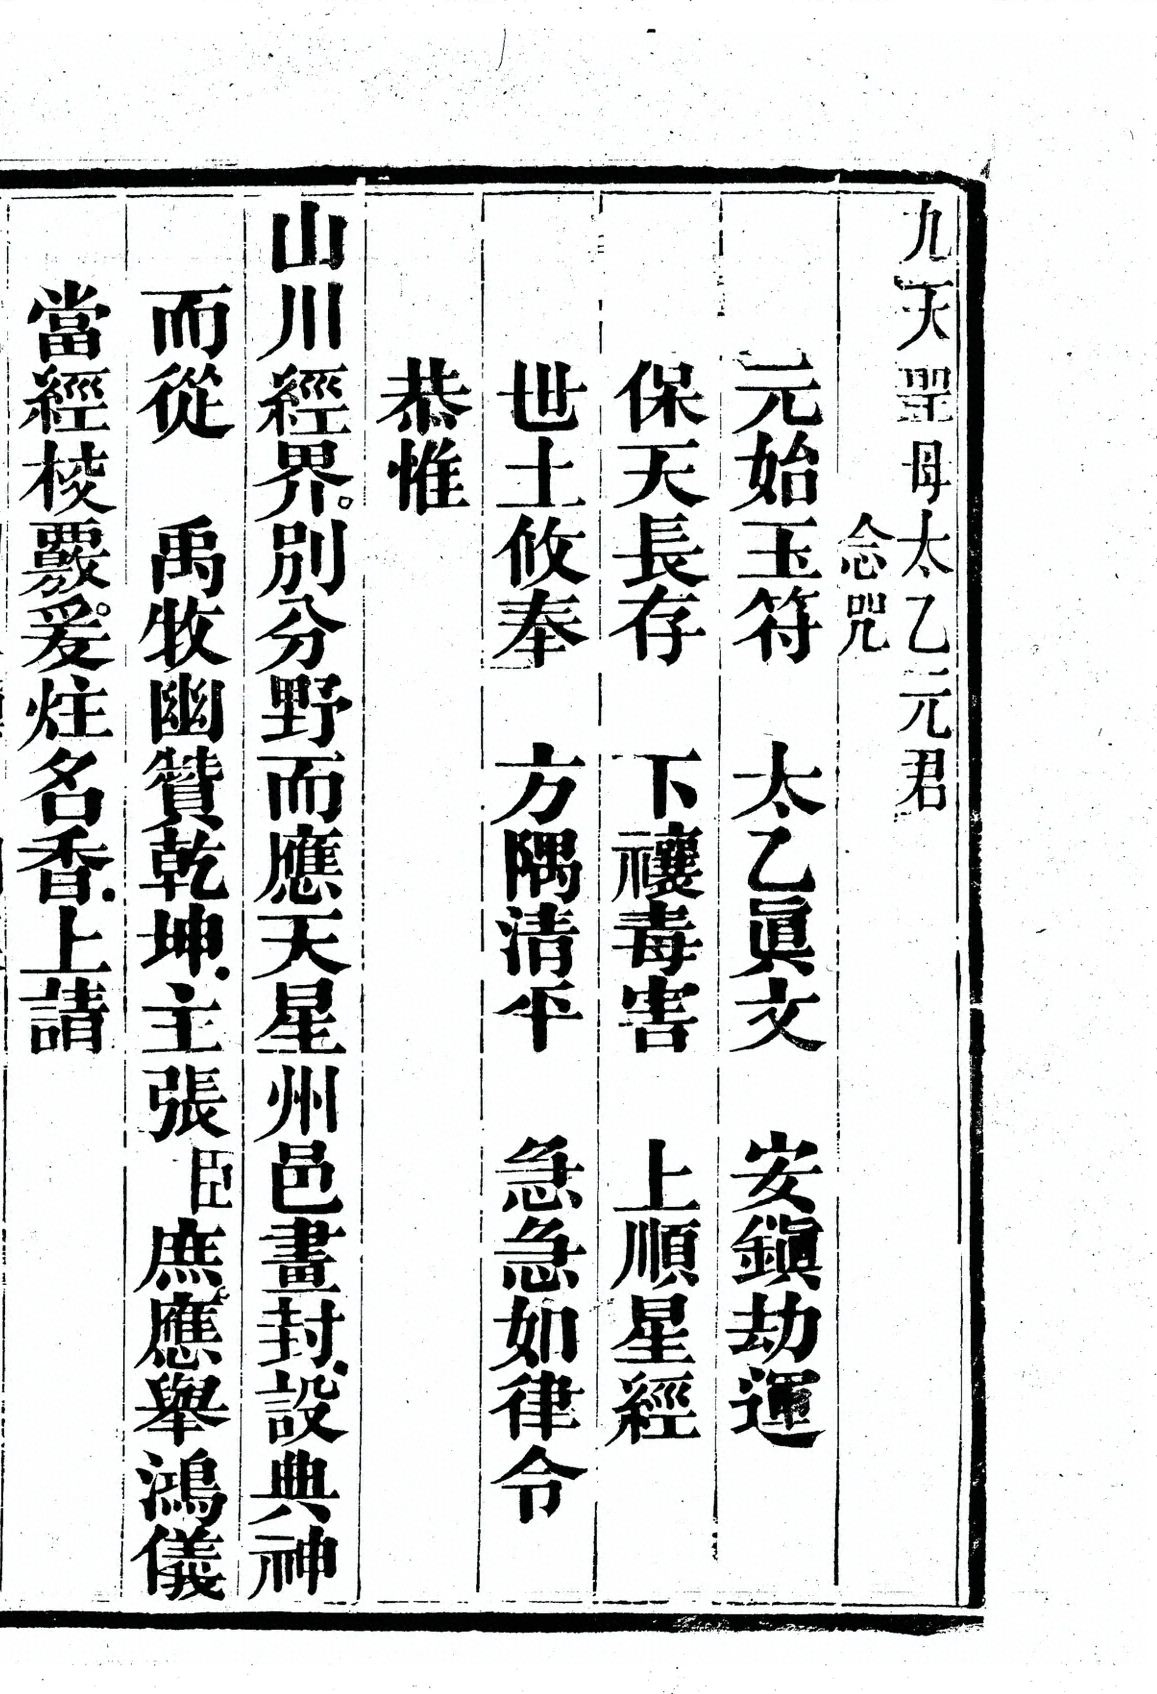 九天聖母太乙元君
念咒
元始玉符　太乙眞文　安鎭劫運
保天長存　下禳毒害　上順星經
世土攸奉　方隅清平　急急如律令
恭惟
山川經界。別分野而應天星州邑畫封.設典神
而從　禹牧幽贊乾坤.主張臣庶。應舉鴻儀
當經棱覈。爰炷名香.上請